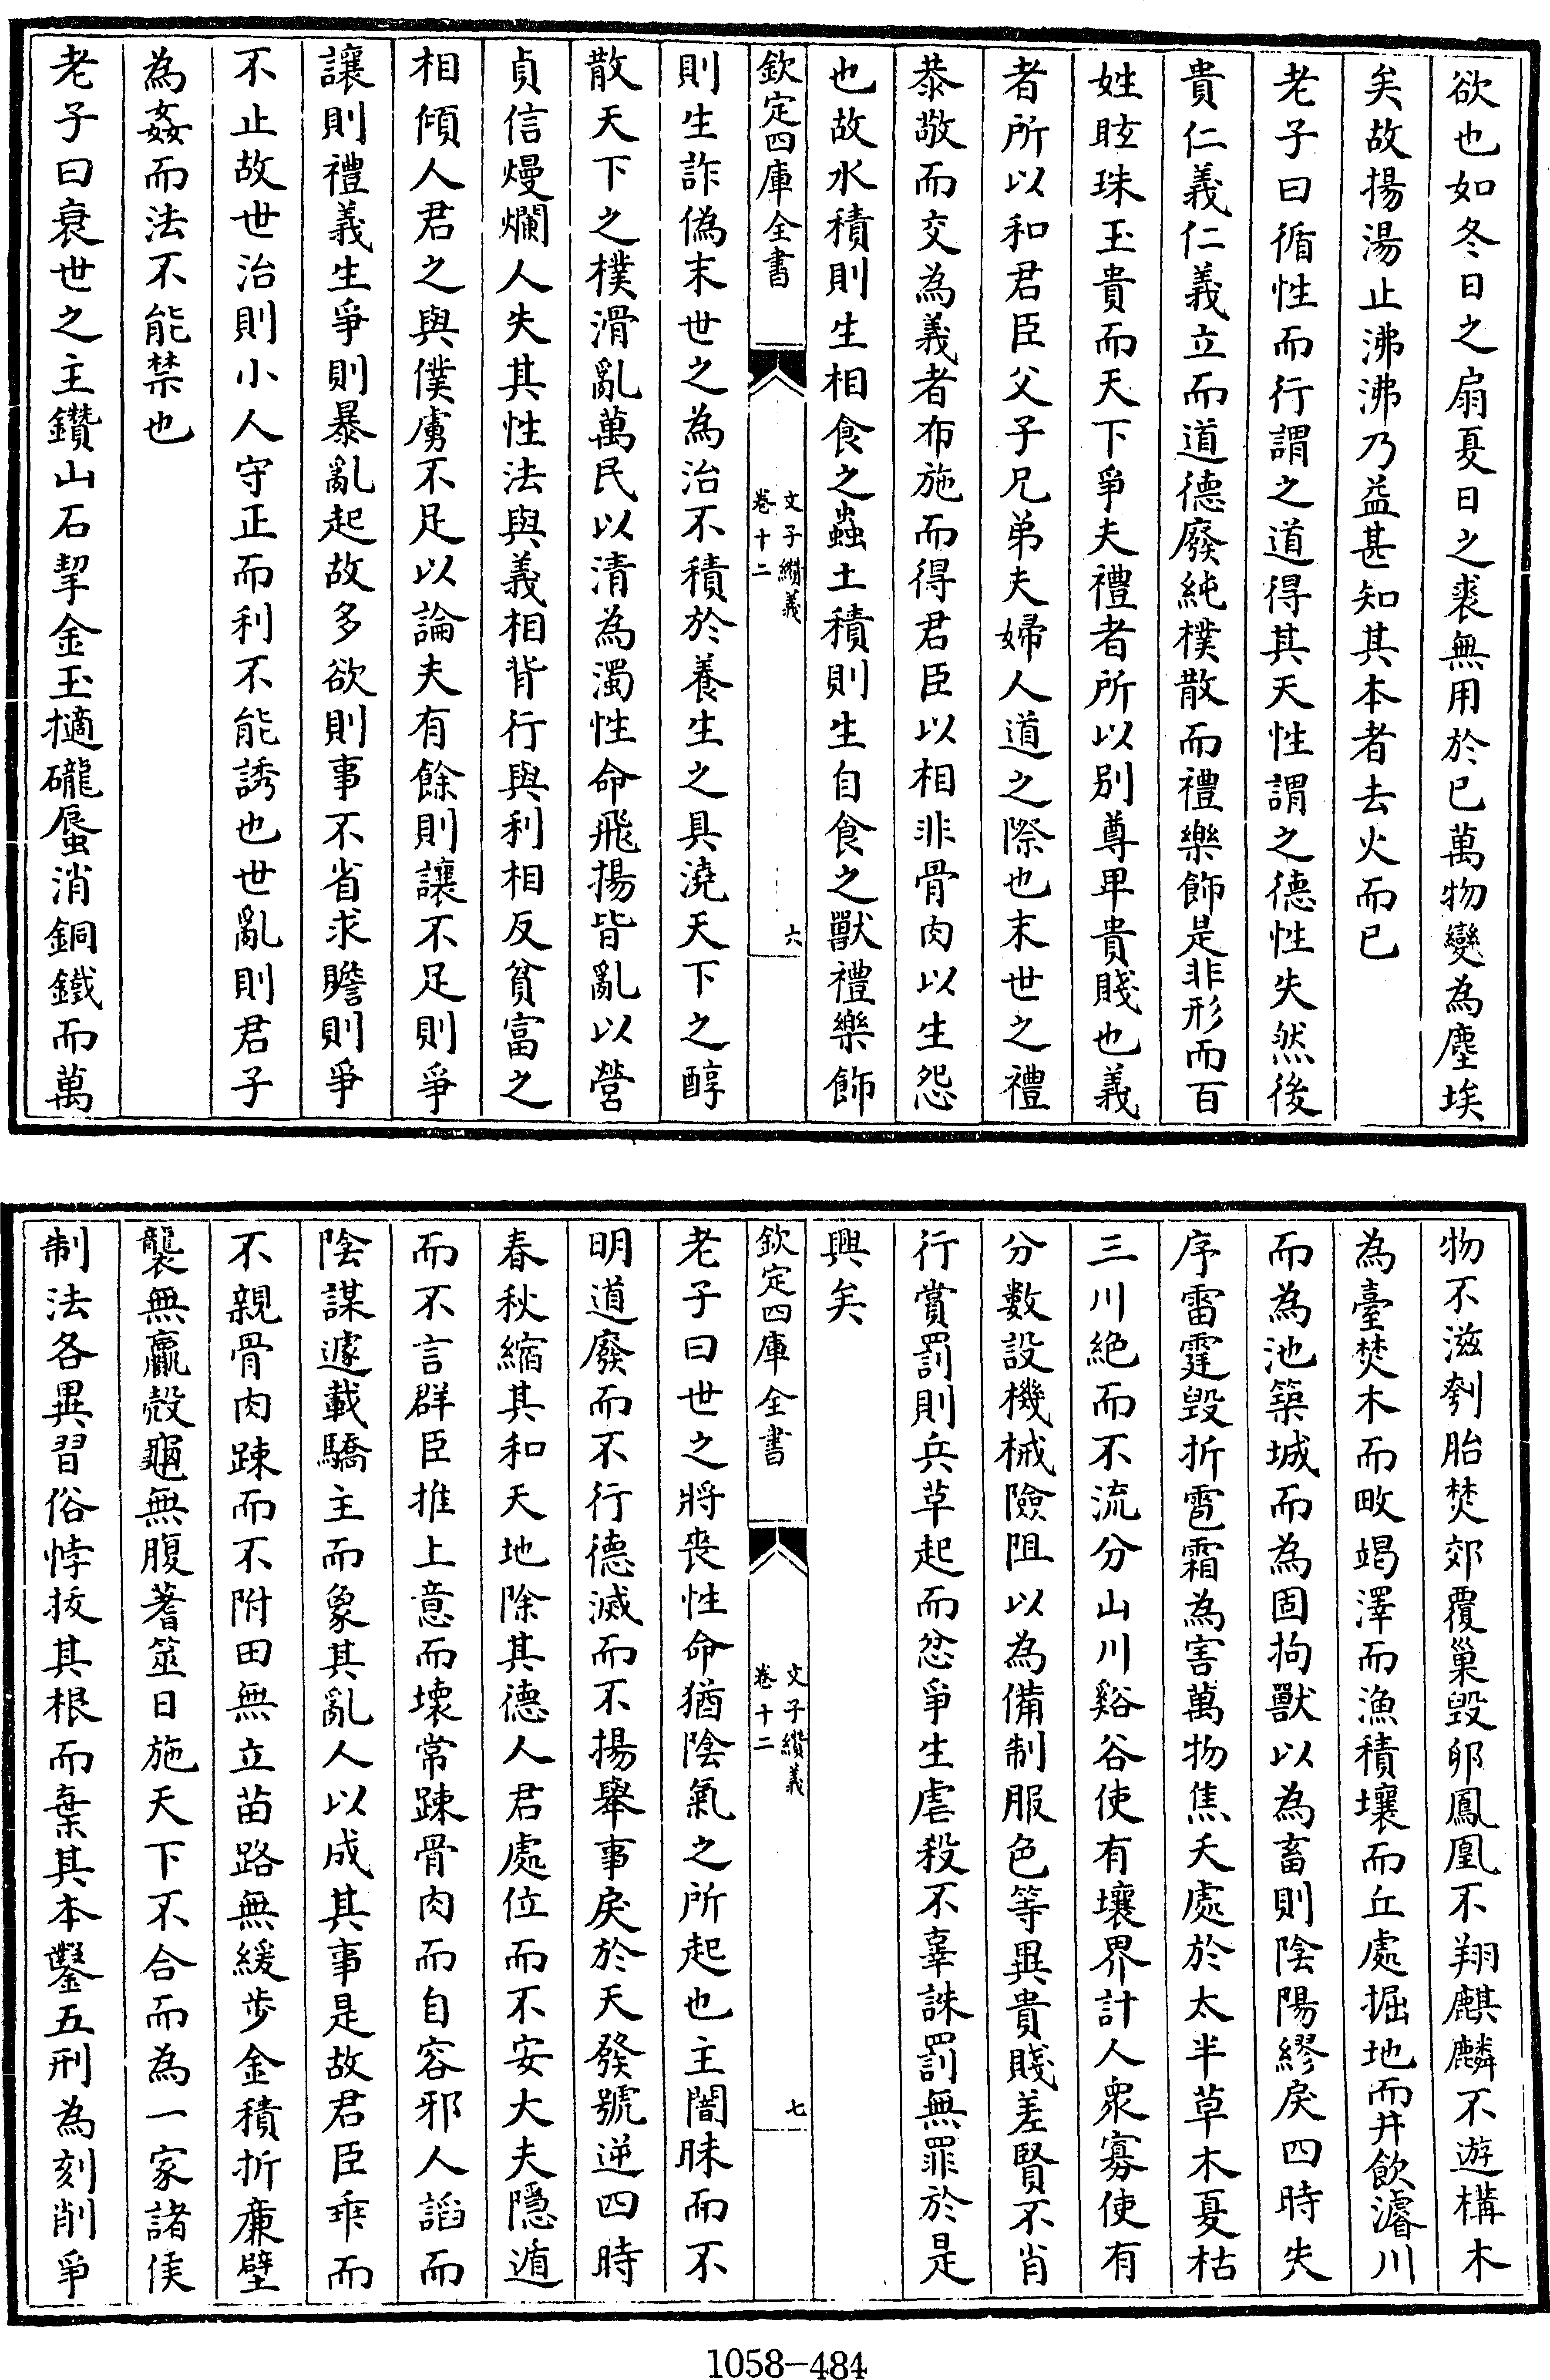 欲也如冬日之扇夏日之裘無用於已萬物變為塵埃
矣故揚湯止沸沸乃益甚知其本者去火而已
老子曰循性而行謂之道得其天性謂之德性失然後
貴仁義仁義立而道德廢純樸散而禮樂飾是非形而百
姓眩珠玉貴而天下爭夫禮者所以別尊卑貴賤也義
者所以和君臣父子兄弟夫婦人道之際也末世之禮
恭敬而交為義者布施而得君臣以相非骨肉以生怨
也故水積則生相食之蟲土積則生自食之獸禮樂飾
欽定四庫全書
文子纘義
卷十二
六
則生詐偽末世之為治不積於養生之具澆天下之醇
散天下之樸滑亂萬民以清為濁性命飛揚皆亂以營
貞信熳爛人失其性法與義相背行與利相反貧富之
相傾人君之與僕虜不足以論夫有餘則讓不足則爭
讓則禮義生爭則暴亂起故多欲則事不省求贍則爭
不止故世治則小人守正而利不能誘也世亂則君子
為姦而法不能禁也
老子曰衰世之主鑽山石挈金玉擿礲蜃消銅鐵而萬
物不滋刳胎焚郊覆巢毀卵鳳凰不翔麒麟不遊構木
為臺焚木而畋竭澤而漁積壤而丘處掘地而井飲濬川
而為池築城而為固拘獸以為畜則陰陽繆戾四時失
序雷霆毀折雹霜為害萬物焦夭處於太半草木夏枯
三川絕而不流分山川谿谷使有壤界計人眾寡使有
分數設機械險阻以為備制服色等異貴賤差賢不肖
行賞罰則兵草起而忿爭生虐殺不辜誅罰無罪於是
興矣
欽定四庫全書
文子纘義
卷十二
七
老子曰世之將喪性命猶陰氣之所起也主闇昧而不
明道廢而不行德滅而不揚舉事戾於天發號逆四時
春秋縮其和天地除其德人君處位而不安大夫隱遁
而不言群臣推上意而壞常踈骨肉而自容邪人諂而
陰謀遽載驕主而象其亂人以成其事是故君臣乖而
不親骨肉踈而不附田無立苗路無緩步金積折廉壁
襲無臝殼龜無腹蓍筮日施天下不合而為一家諸侯
制法各異習俗悖拔其根而棄其本鑿五刑為刻削爭
1058-484